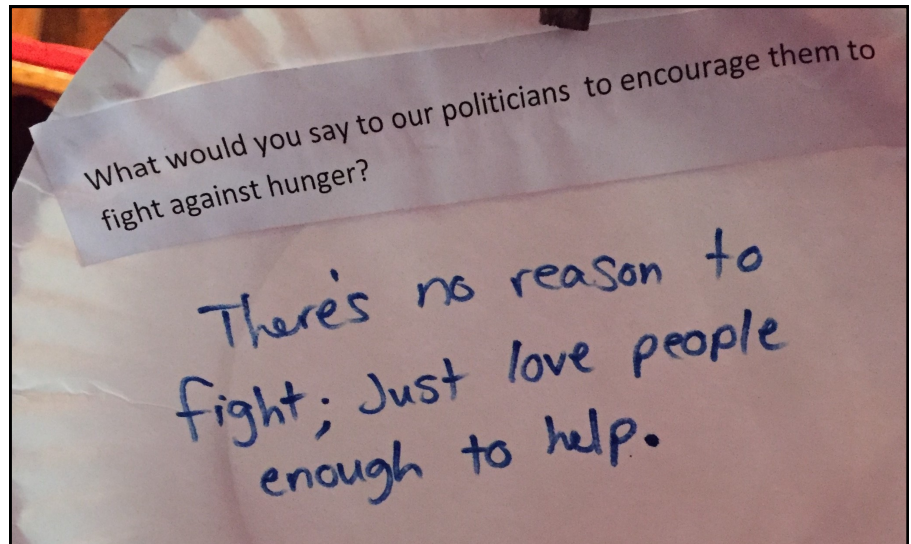 What would you say to our politicians to encourage them to
fight against hunger?
There's no reason to
fight; Just love people
enough to help.